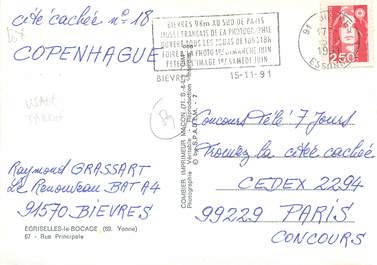 cité cachée n° 18
COPENHAGUE
BIEVRES 9 Km AU SUD DE PARIS
MUSEE FRANÇAIS DE LA PHOTOGRAPHIE
OUVERT TOUS LES JOURS DE 10H A 18H
FOIRE A LA PHOTO 1er DIMANCHE JUIN
FETE DE L'IMAGE 1er SAMEDI JUIN
BIEVRES 15-11-91
91
ESSONNE
2,50
Concours Télé 7 Jours
Trouvez la cité cachée
CEDEX 2294
99229 PARIS
CONCOURS
Raymond GRASSART
Le Renouveau BAT A4
91570 BIEVRES
EGRISELLES-le-BOCAGE (89. Yonne)
67 - Rue Principale
COMBIER IMPRIMEUR MACON (71. S.-&-L.)
Photographie Véritable - Reproduction